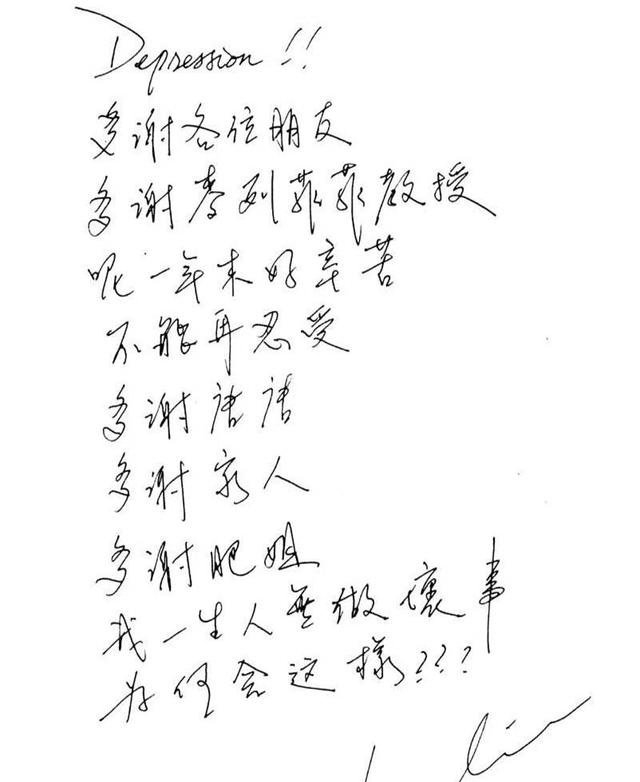 Depression !!
多谢各位朋友
多谢麥列菲菲教授
呢一年来好辛苦
不能再忍受
多谢唐唐
多谢家人
多谢肥姐
我一生人無做壞事
为何会这樣???